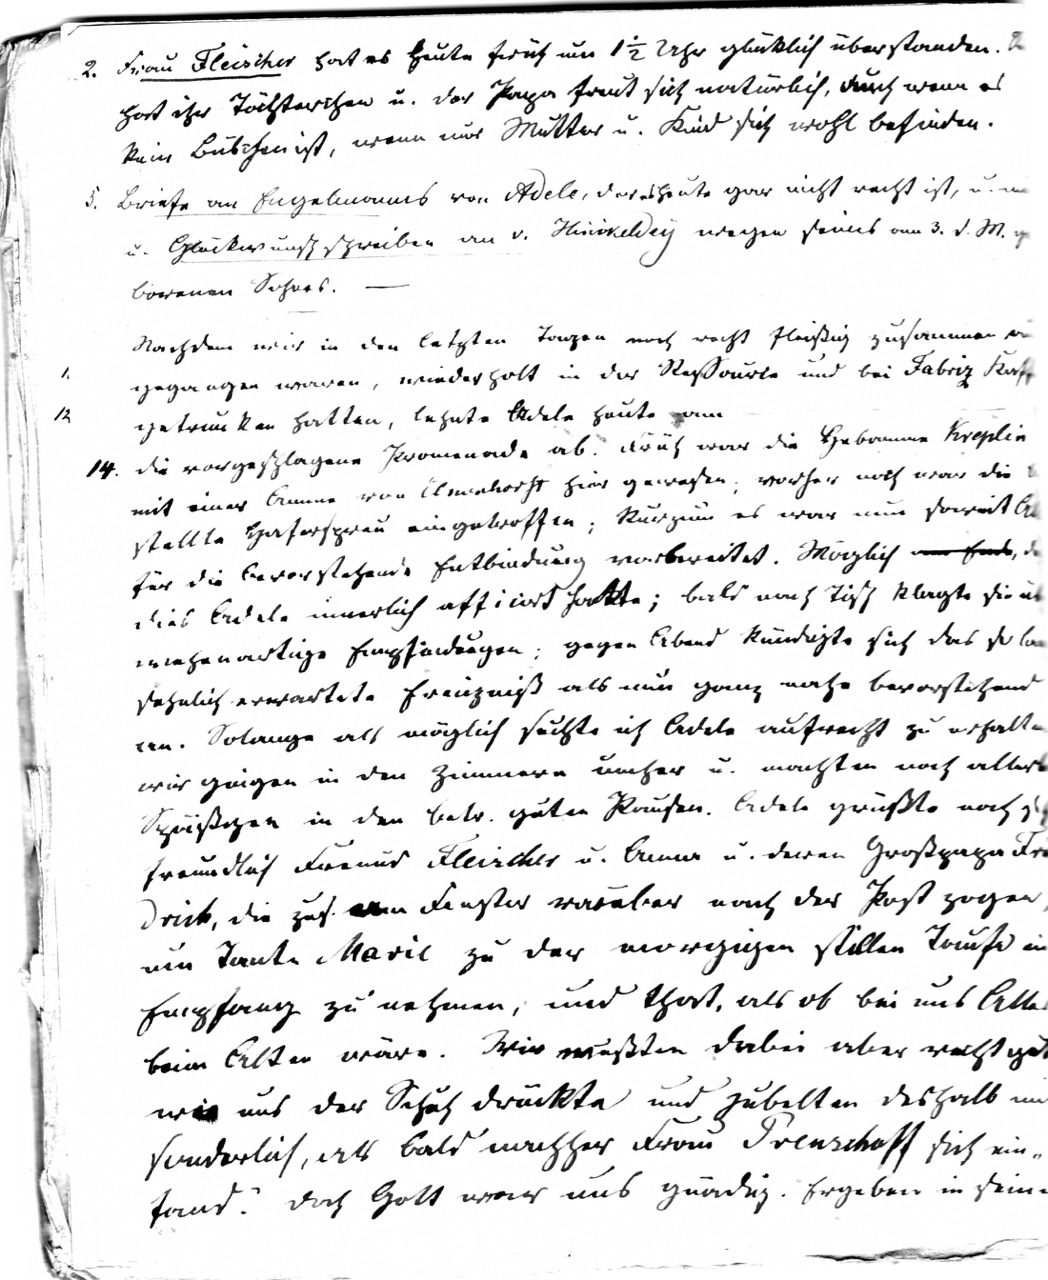 2. Frau Fleischer hat es heute früh um 1½ Uhr glücklich überstanden.
hat ihr Töchterchen u. der Papa freut sich natürlich, auch wenn es
kein Bübchen ist, wenn nur Mutter u. Kind sich wohl befinden.
5. Briefe an Engelmanns von Adele, der es heute gar nicht recht ist, u.
u. Glückwunschschreiben an v. Hinckeldey wegen seines am 3. d. M. ge
borenen Sohnes. —
Nachdem wir in den letzten Tagen noch recht fleißig zusammen
1. gegangen waren, wiederholt in der Ressource und bei Fabriz Kaff
12 getrunken hatten, lehnte Adele heute am
14. die vorgeschlagene Promenade ab. Früh war die Hebamme Kreplin
mit einer Amme von hier gewesen; vorher noch war die be
stellte Haferspreu eingetroffen; kurzum es war nun soweit
für die bevorstehende Entbindung vorbereitet. Möglich am Ende,
dies Adele innerlich afficirt hatte; bald nach Tisch klagte sie
wehenartige Empfindungen; gegen Abend kündigte sich das so la
sehnlich erwartete Ereigniß als nun ganz nahe bevorstehend
an. Solange als möglich suchte ich Adele aufrecht zu erhalten
wir gingen in den Zimmern umher u. machten noch allerl
Späßchen in den betr. guten Pausen. Adele grüßte noch
freundlich Freund Fleischer u. Anna u. deren Großpapa Frie
drich, die zus. am Fenster vorüber nach der Post zogen,
um Tante Marie zu der morgigen stillen Taufe in
Empfang zu nehmen, und that, als ob bei uns Alles
beim Alten wäre. Wir wußten dabei aber recht gut
wo uns der Schuh drückte und jubelten deshalb
sonderlich, als bald nachher Frau Prenzchoff sich ein-
fand. Doch Gott war uns gnädig. Ergeben in seine